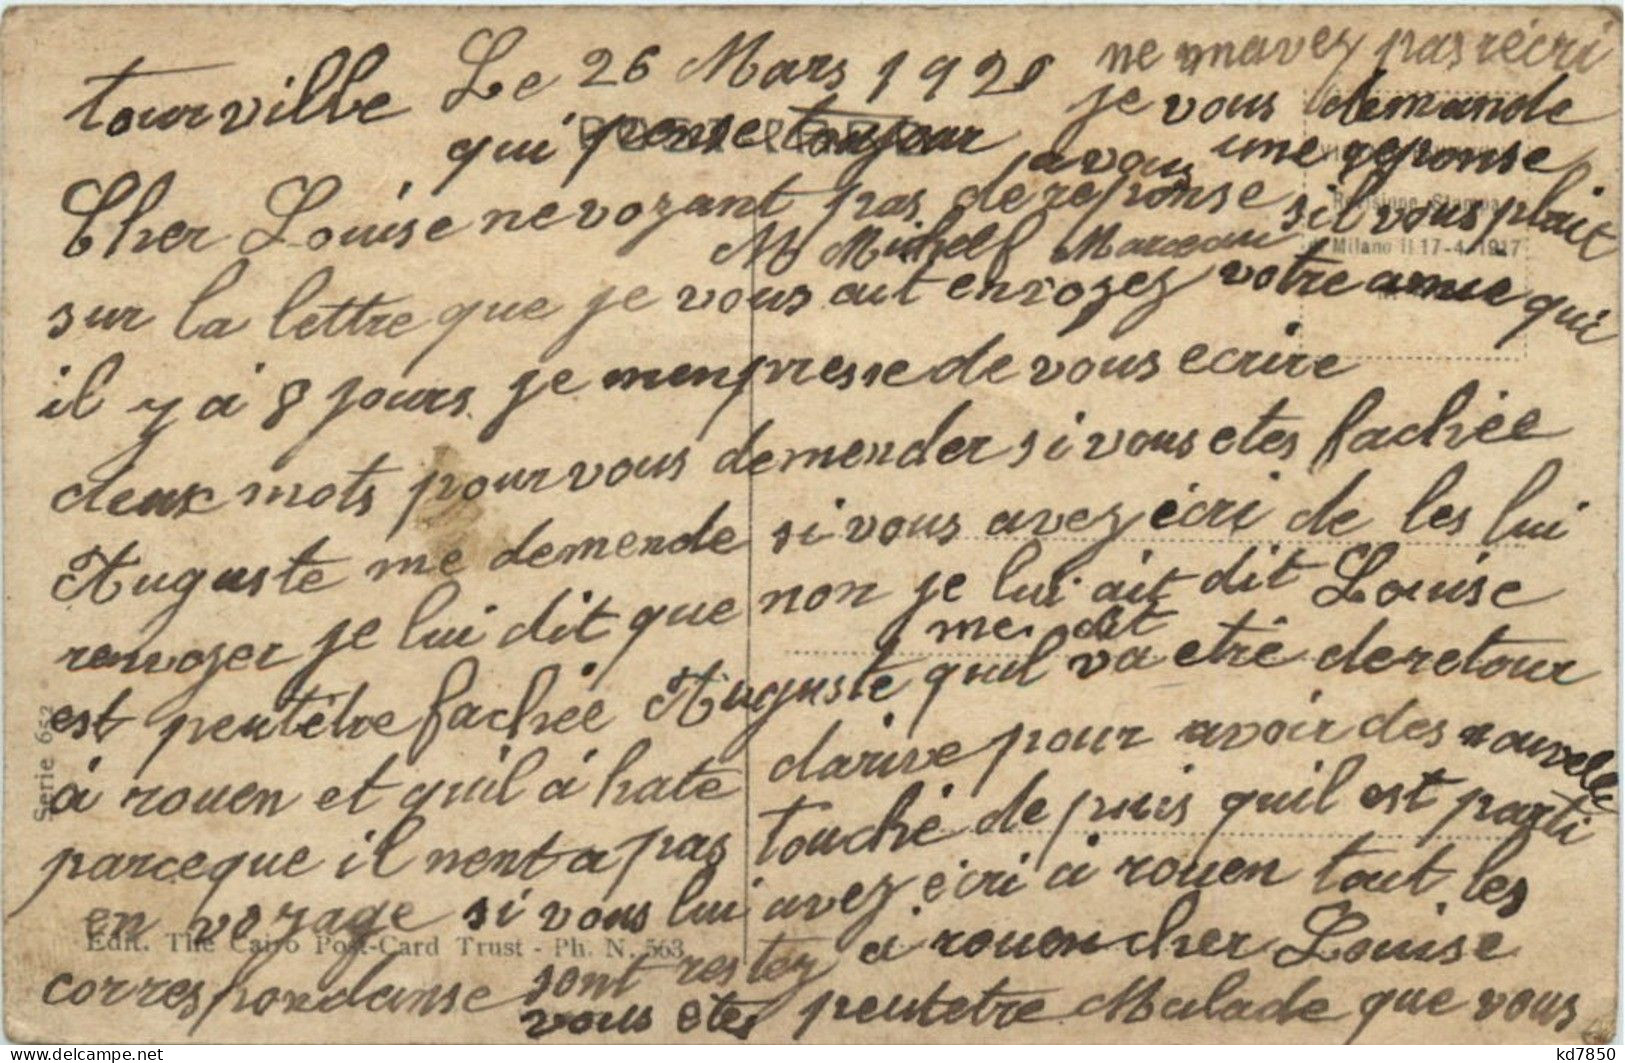 tourville Le 26 Mars 1921
Cher Louise ne vozant pas de reponse
sur la lettre que je vous ait envozez
il y á 8 jours. je menpresse de vous ecrire
deux mots pour vous demender si vous etes fachée
Auguste me demende si vous avez écri de les lui
renvozer je lui dit que non je lui ait dit Louise
est peutêtre fachée Auguste me dit quil va etre de retour
á rouen et quil á hate darive pour avoir des nouvelle
parceque il nent a pas touché de puis quil est parti
en vozage si vous lui avez écri á rouen tout les
correspondanse sont restez á rouen cher Louise
vous etes peutetre Malade que vous
ne mavez pas récri
je vous demande
une reponse
sil vous plait
votre amie qui
qui pense toujour
a vous
M Michel Marceau
POST CARD
Revisione Stampa
Milano il 17-4-1917
Serie 652
Edit. The Cairo Post-Card Trust - Ph. N. 563
kd7850